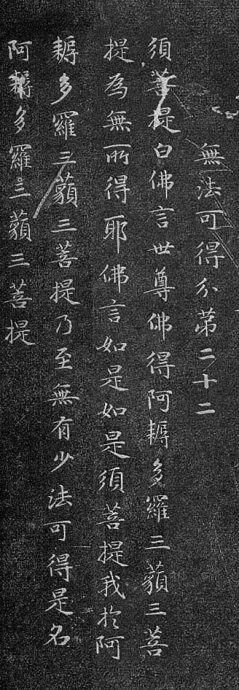 無法可得分第二十二
須菩提白佛言世尊佛得阿耨多羅三藐三菩
提為無所得耶佛言如是如是須菩提我於阿
耨多羅三藐三菩提乃至無有少法可得是名
阿耨多羅三藐三菩提